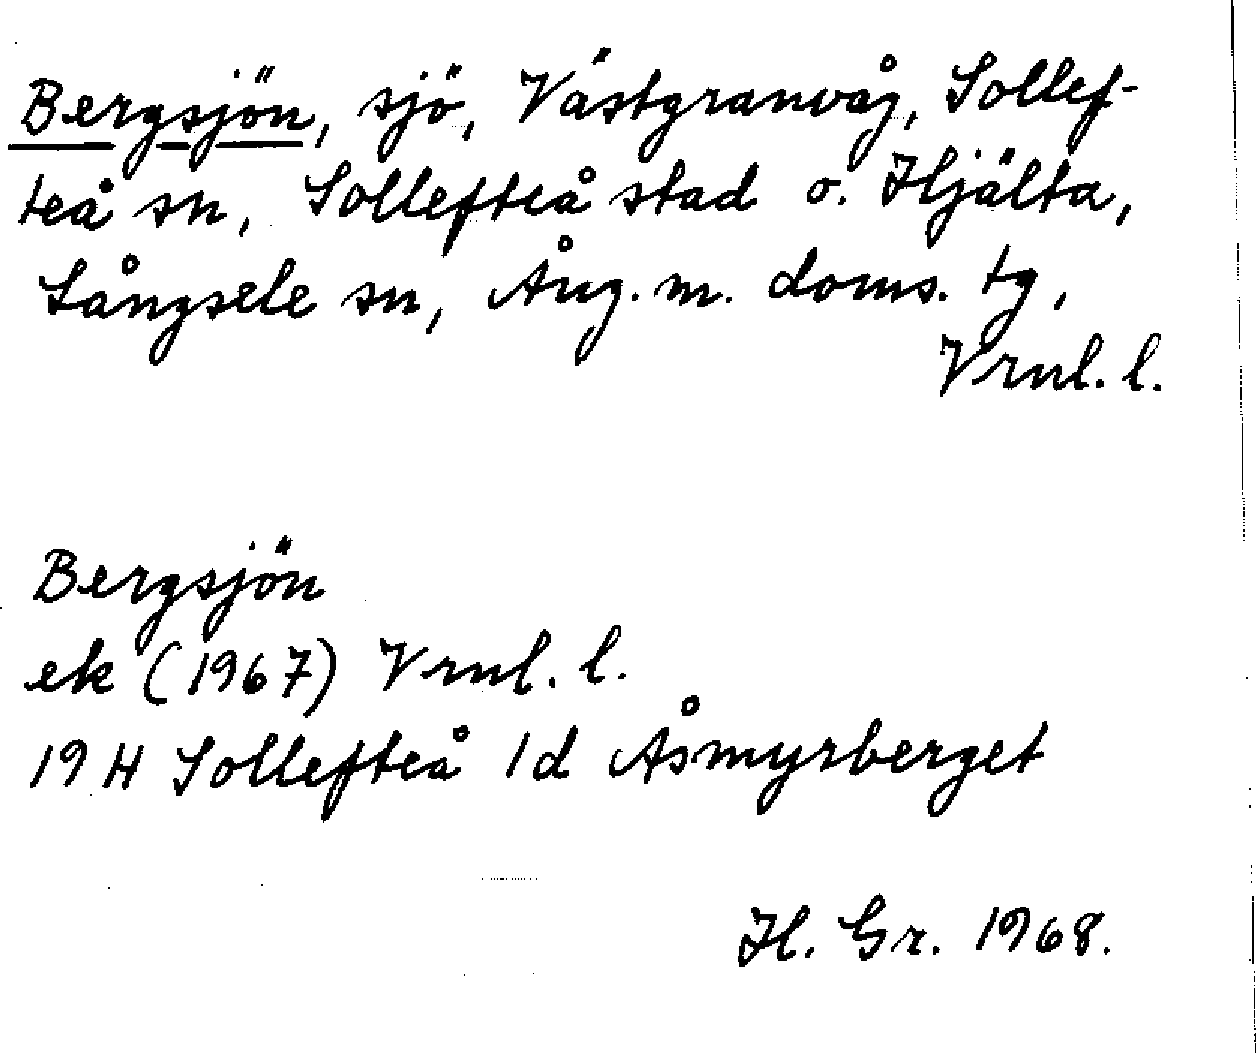 Bergsjön, sjö, Västgranvåg, Sollef-
teå sn, Sollefteå stad o. Hjälta,
Långsele sn, Ång. m. doms. tg,
Vrnl. l.
Bergsjön
ek (1967) Vrnl. l.
19 H Sollefteå 1d Åsmyrberget
H. Gr. 1968.